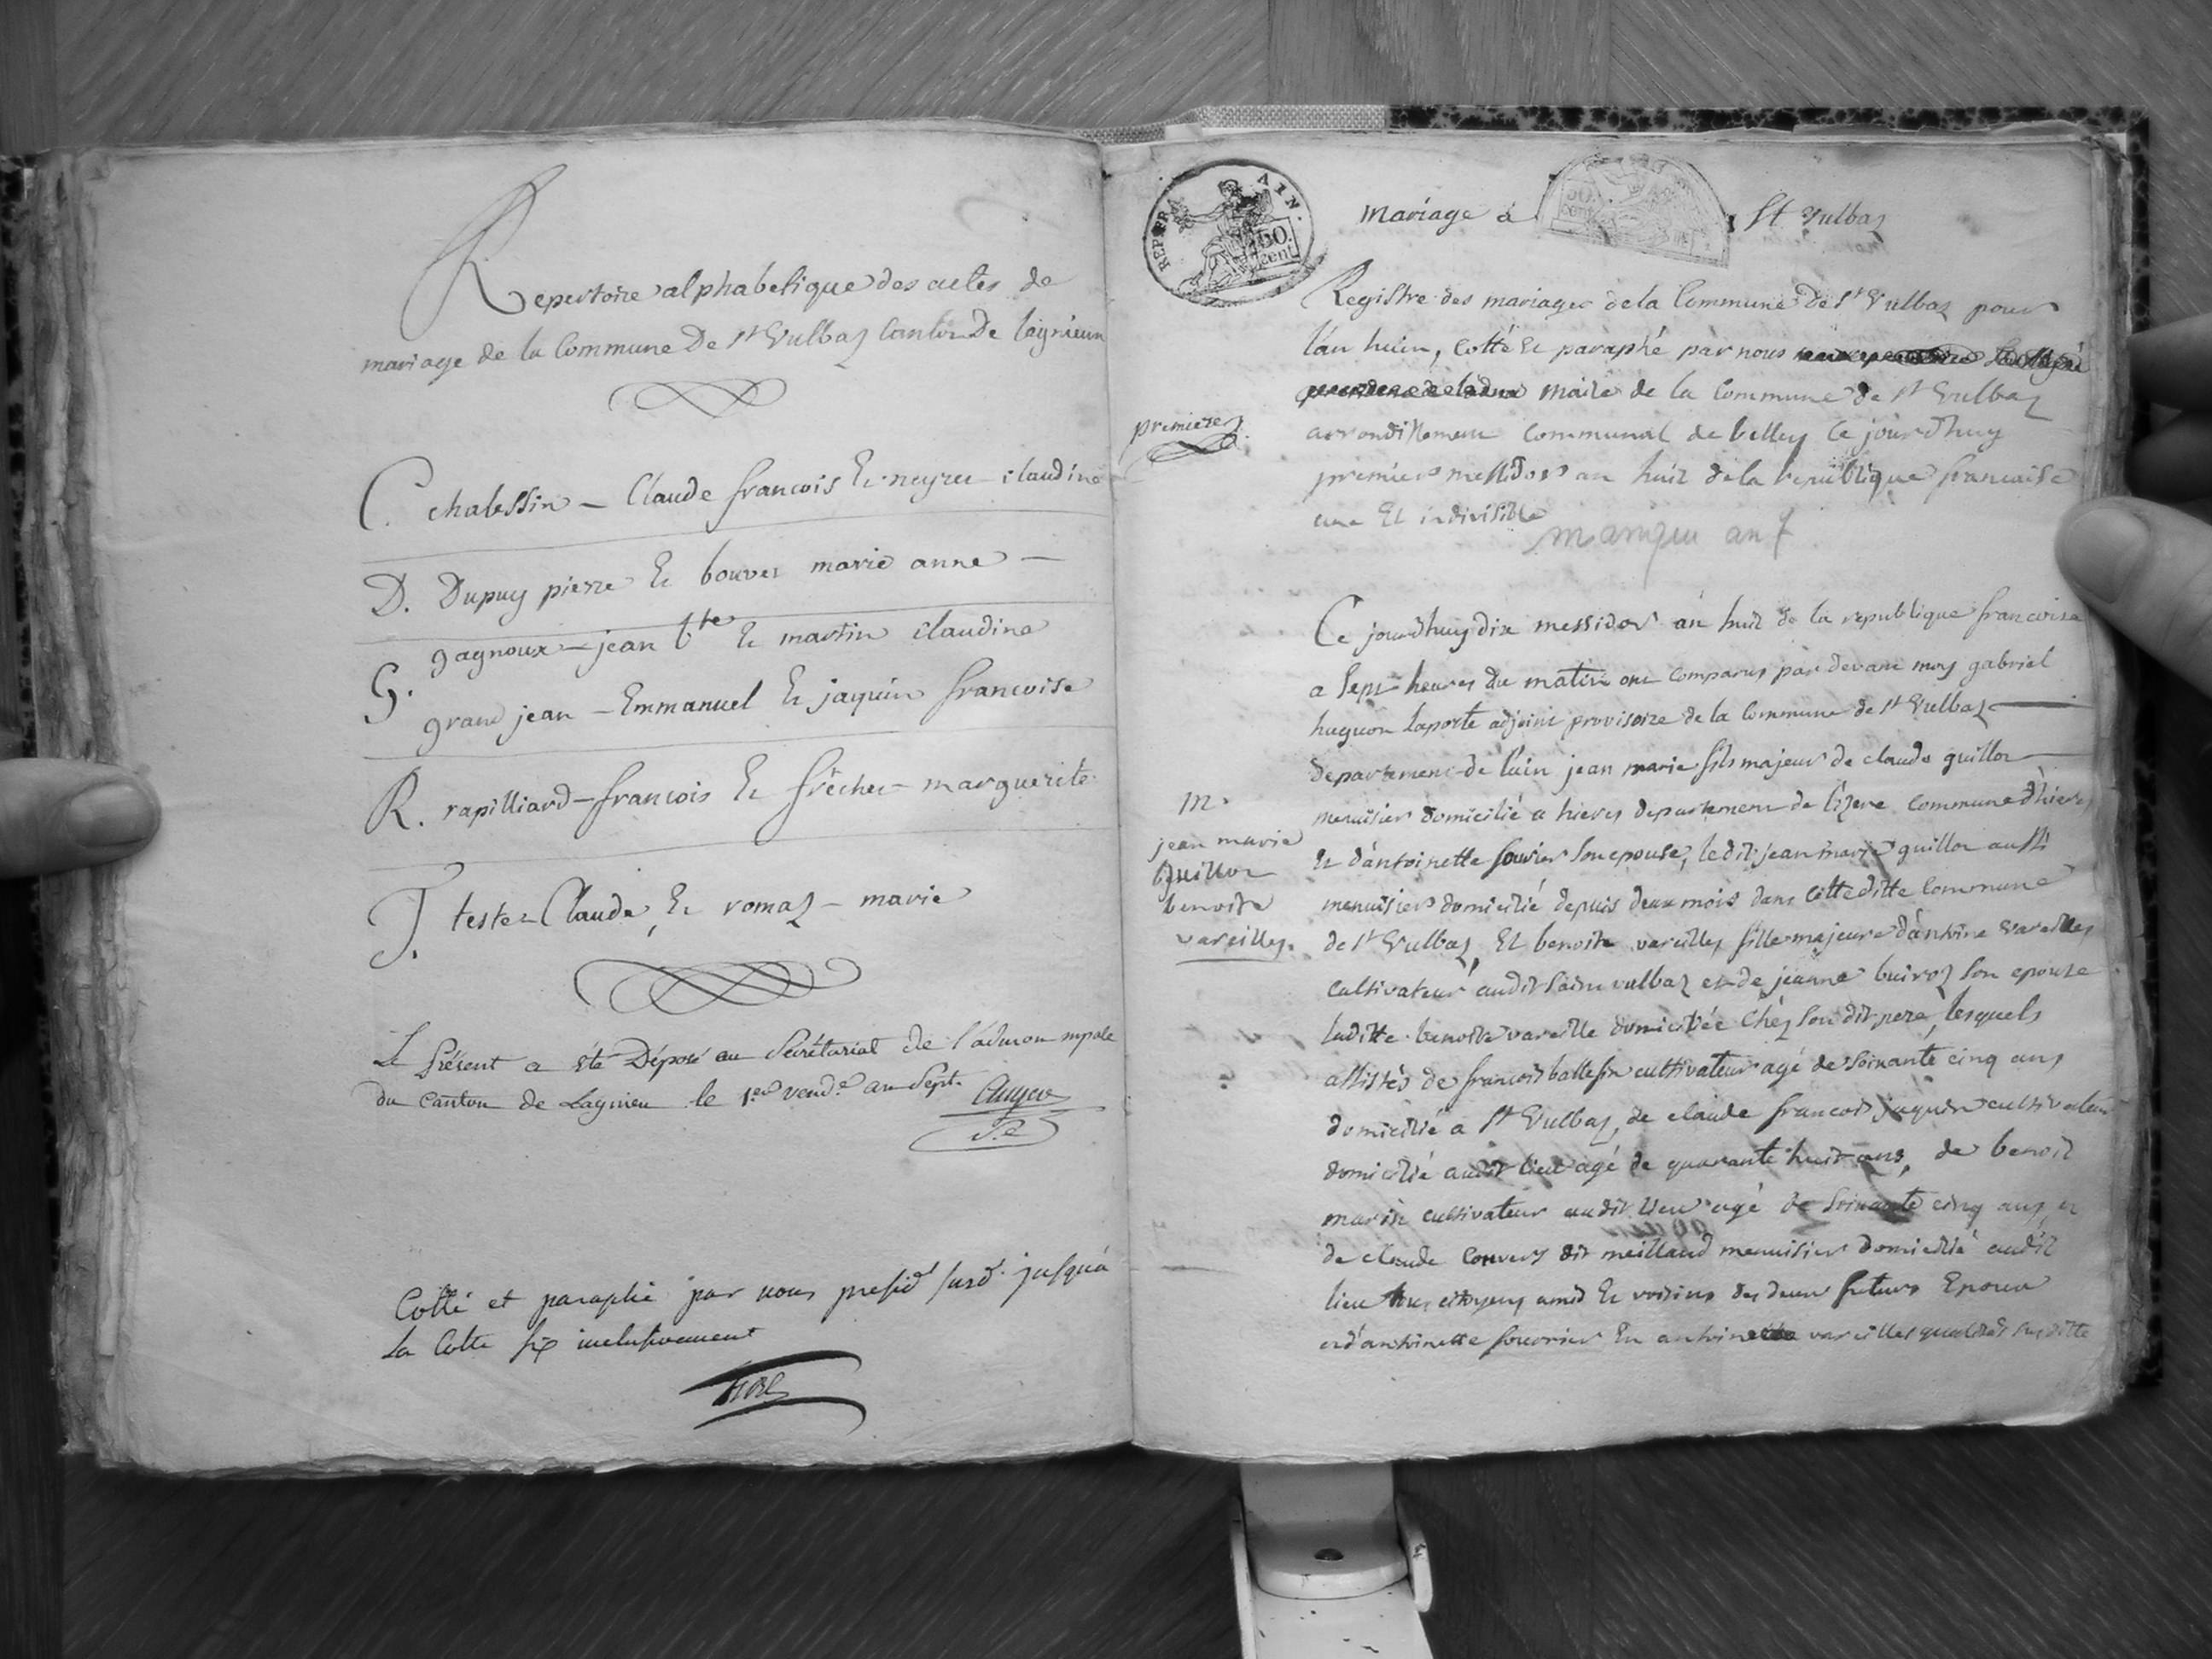 Repertoire alphabetique des actes de
mariage de la Commune De St Vulbas Canton De lagnieu
C. chabessin - Claude francois Et neyret claudine
D. Dupuy pierre Et bouvet marie anne -
G. gagnoux - jean bte Et martin claudine
grand jean - Emmanuel Et jaquin francoise
R. rapilliard - francois Et frêchet - marguerite
T. teste - Claude, Et romas - marie
Le Présent a été Déposé au Secrétariat de l'admon mpale
du Canton de Lagnieu le 1er vendre an Sept.
Cotté et paraphé par nous presidt susd. jusqu'à
la Cotte six inclusivement
REP. FRA. AIN.
50. cent
mariage a St Vulbas
premier
Registre des mariages de la Commune De St Vulbas pour
l'an huit, cotté Et paraphé par nous
maire de la Commune de St Vulbas
arrondissement Communal de belley Ce jourdhuy
premier messidor an huit de la republique francaise
une Et indivisible
manque an 7
m.
jean marie
Guillot
benoite
vareilles.
Ce jourdhuy dix messidor an huit de la republique francoise
a sept heures du matin ont comparus par devant moy gabriel
huguon laporte adjoint provisoire de la Commune de St Vulbas
departement de l'ain jean marie fils majeur de claude guillot
menuisier domicilié a hieres departement de l'izere Commune d'hieres
Et d'antoinette son epouse, le dit jean marie guillot aussi
menuisier domicilié depuis deux mois dans cette ditte Commune
de St Vulbas, Et benoite vareilles fille majeure d'antoine vareilles
Cultivateur audit Saint vulbas et de jeanne buiros son epouse
laditte benoite vareille domiciliée Chés son dit pere, lesquels
assistés de francois ballesin cultivateur agé de Soixante cinq ans
domicilié a St Vulbas, de claude francois jaquin cultivateur
domicilié audit lieu agé de quarante huit ans, de benoit
marin cultivateur audit lieu agé de Soixante cinq ans et
de claude Convers dit meilland menuisier domicilié audit
lieu tous citoyens amis Et voisins des deux futurs Epoux
et d'antoinette vareilles